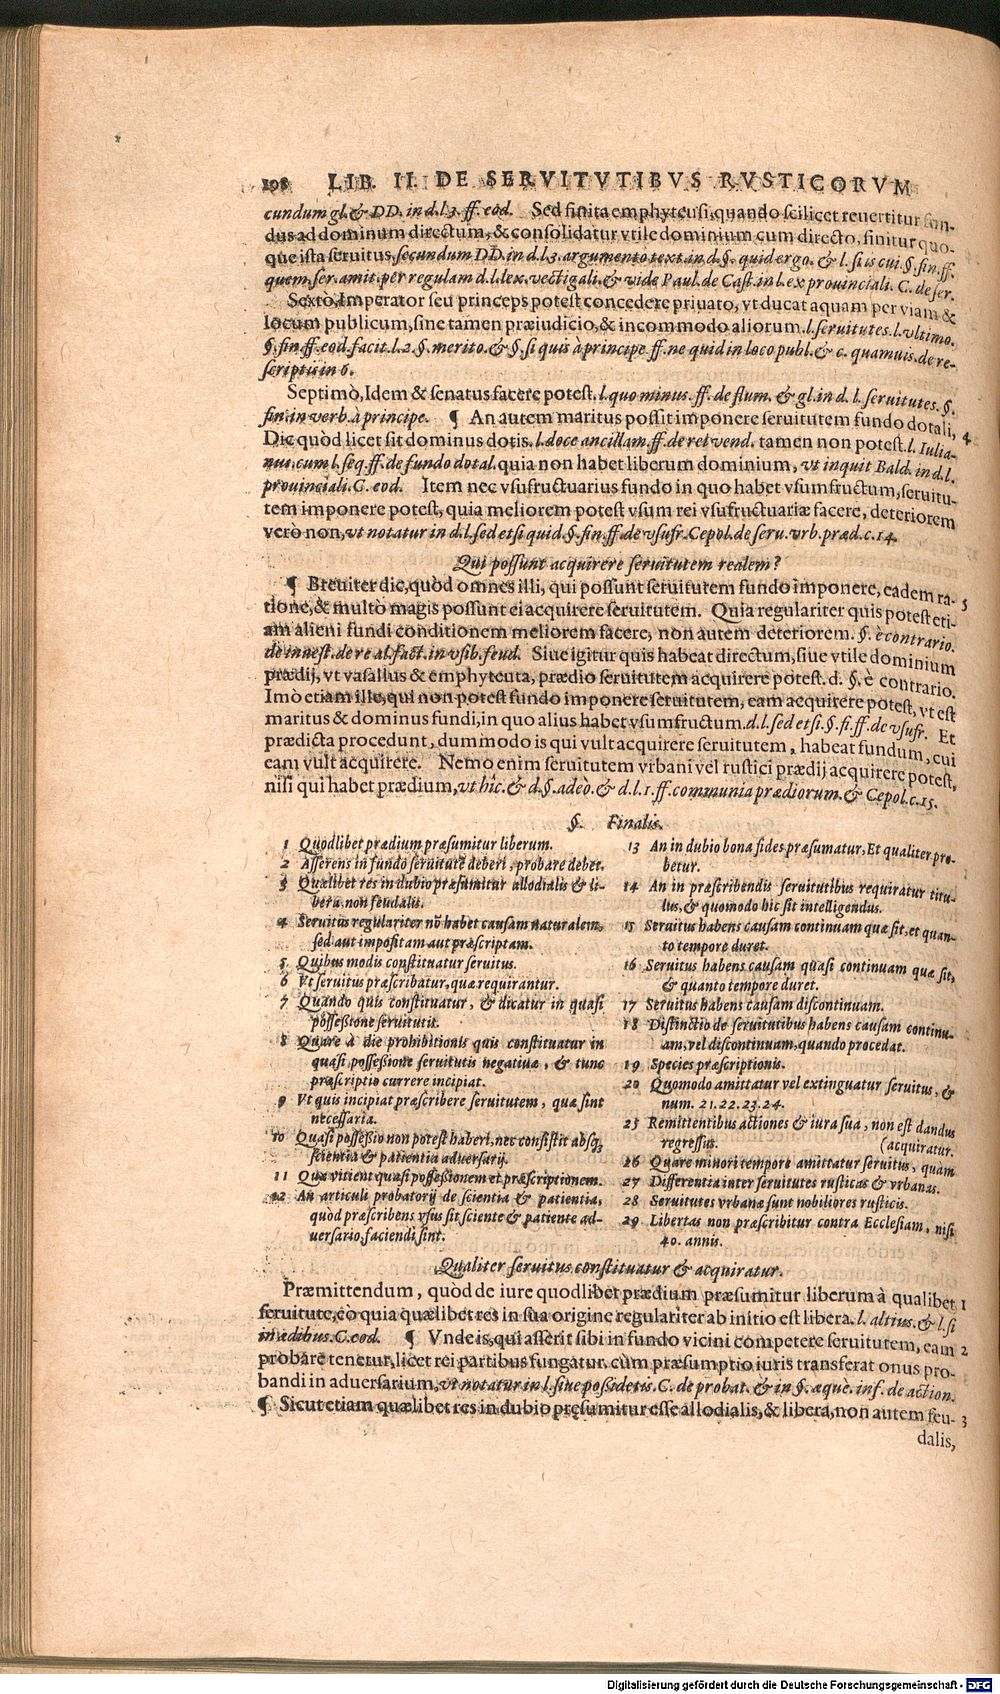 198 LIB. II. DE SERVITVTIBVS RVSTICORVM
cundum gl. & DD. in d. l. 3. ff. eod. Sed finita emphyteusi, quando scilicet reuertitur fun-
dus ad dominum directum, & consolidatur vtile dominium cum directo, finitur quo-
que ista seruitus, secundum DD. in d. l. 3. argumento text. in d. §. quid ergo. & l. si is cui. §. fin. ff.
quem. ser. amit. per regulam d. l. lex. vectigali. & vide Paul. de Cast. in l. ex prouinciali. C. de ser.
Sextò, Imperator seu princeps potest concedere priuato, vt ducat aquam per viam &
locum publicum, sine tamen præiudicio, & incommodo aliorum. l. seruitutes. l. vltimo.
§. fin. ff. eod. facit. l. 2. §. merito. & §. si quis à principe. ff. ne quid in loco publ. & c. quamuis. de re-
scriptis in 6.
Septimò, Idem & senatus facere potest. l. quo minus. ff. de flum. & gl. in d. l. seruitutes. §.
fin. in verb. à principe. ¶ An autem maritus possit imponere seruitutem fundo dotali, 4
Dic quòd licet sit dominus dotis. l. doce ancillam. ff. de rei vend. tamen non potest. l. Iulia-
nus. cum l. seq. ff. de fundo dotal. quia non habet liberum dominium, vt inquit Bald. in d. l.
prouinciali. C. eod. Item nec vsufructuarius fundo in quo habet vsumfructum, seruitu-
tem imponere potest, quia meliorem potest vsum rei vsufructuariæ facere, deteriorem
verò non, vt notatur in d. l. sed etsi quid. §. fin. ff. de vsufr. Cepol. de seru. vrb. præd. c. 14.
Qui possunt acquirere seruitutem realem?
¶ Breuiter dic, quòd omnes illi, qui possunt seruitutem fundo imponere, eadem ra- 5
tione, & multò magis possunt ei acquirere seruitutem. Quia regulariter quis potest eti-
am alieni fundi conditionem meliorem facere, non autem deteriorem. §. è contrario.
de inuest. de re al. fact. in vsib. feud. Siue igitur quis habeat directum, siue vtile dominium
prædij, vt vasallus & emphyteuta, prædio seruitutem acquirere potest. d. §. è contrario.
Imò etiam ille, qui non potest fundo imponere seruitutem, eam acquirere potest, vt est
maritus & dominus fundi, in quo alius habet vsumfructum. d. l. sed etsi. §. fi. ff. de vsufr. Et
prædicta procedunt, dummodo is qui vult acquirere seruitutem, habeat fundum, cui
eam vult acquirere. Nemo enim seruitutem vrbani vel rustici prædij acquirere potest,
nisi qui habet prædium, vt hîc. & d. §. adeò. & d. l. 1. ff. communia prædiorum. & Cepol. c. 15.
§. Finalis.
1 Quodlibet prædium præsumitur liberum.
2 Asserens in fundo seruitutē deberi, probare debet.
3 Quælibet res in dubio præsumitur allodialis & li-
bera, non feudalis.
4 Seruitus regulariter nō habet causam naturalem,
sed aut impositam aut præscriptam.
5 Quibus modis constituatur seruitus.
6 Vt seruitus præscribatur, quæ requirantur.
7 Quando quis constituatur, & dicatur in quasi
possessione seruitutis.
8 Quare à die prohibitionis quis constituatur in
quasi possessione seruitutis negatiuæ, & tunc
præscriptio currere incipiat.
9 Vt quis incipiat præscribere seruitutem, quæ sint
necessaria.
10 Quasi possessio non potest haberi, nec consistit absq;
scientia & patientia aduersarij.
11 Quæ vitient quasi possessionem et præscriptionem.
12 An articuli probatorij de scientia & patientia,
quòd præscribens vsus sit sciente & patiente ad-
uersario, faciendi sint.
13 An in dubio bona fides præsumatur, Et qualiter pro-
betur.
14 An in præscribendis seruitutibus requiratur titu-
lus, & quomodo hic sit intelligendus.
15 Seruitus habens causam continuam quæ sit, et quan-
to tempore duret.
16 Seruitus habens causam quasi continuam quæ sit,
& quanto tempore duret.
17 Seruitus habens causam discontinuam.
18 Distinctio de seruitutibus habens causam continu-
am, vel discontinuam, quando procedat.
19 Species præscriptionis.
20 Quomodo amittatur vel extinguatur seruitus, &
num. 21. 22. 23. 24.
25 Remittentibus actiones & iura sua, non est dandus
regressus. (acquiratur.
26 Quare minori tempore amittatur seruitus, quàm
27 Differentia inter seruitutes rusticas & vrbanas.
28 Seruitutes vrbanæ sunt nobiliores rusticis.
29 Libertas non præscribitur contra Ecclesiam, nisi
40. annis.
Qualiter seruitus constituatur & acquiratur.
Præmittendum, quòd de iure quodlibet prædium præsumitur liberum à qualibet 1
seruitute, eò quia quælibet res in sua origine regulariter ab initio est libera. l. altius. & l. si
in ædibus. C. eod. ¶ Vnde is, qui asserit sibi in fundo vicini competere seruitutem, eam 2
probare tenetur, licet rei partibus fungatur. cùm præsumptio iuris transferat onus pro-
bandi in aduersarium, vt notatur in l. siue possidetis. C. de probat. & in §. æquè. inf. de action.
¶ Sicut etiam quælibet res in dubio præsumitur esse allodialis, & libera, non autem feu- 3
dalis,
Digitalisierung gefördert durch die Deutsche Forschungsgemeinschaft - DFG